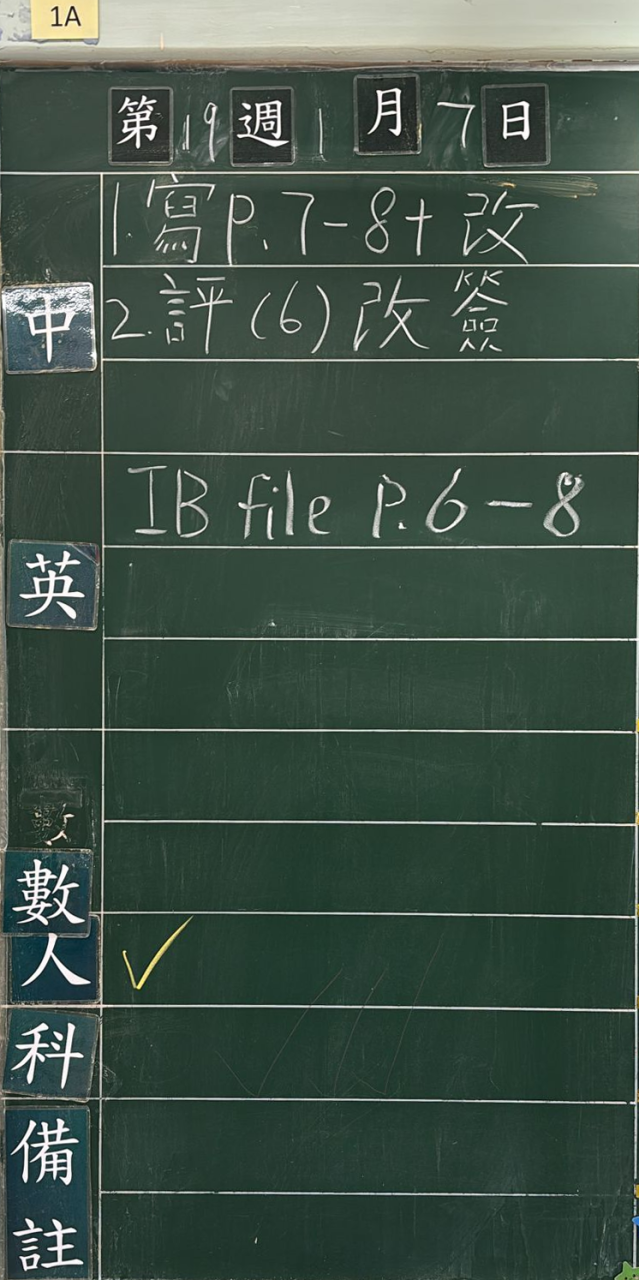 1A
第19週1月7日
1.寫P.7-8+改
中
2.評(6)改簽
IB file P.6-8
英
數
數
人 ✓
科
備
註